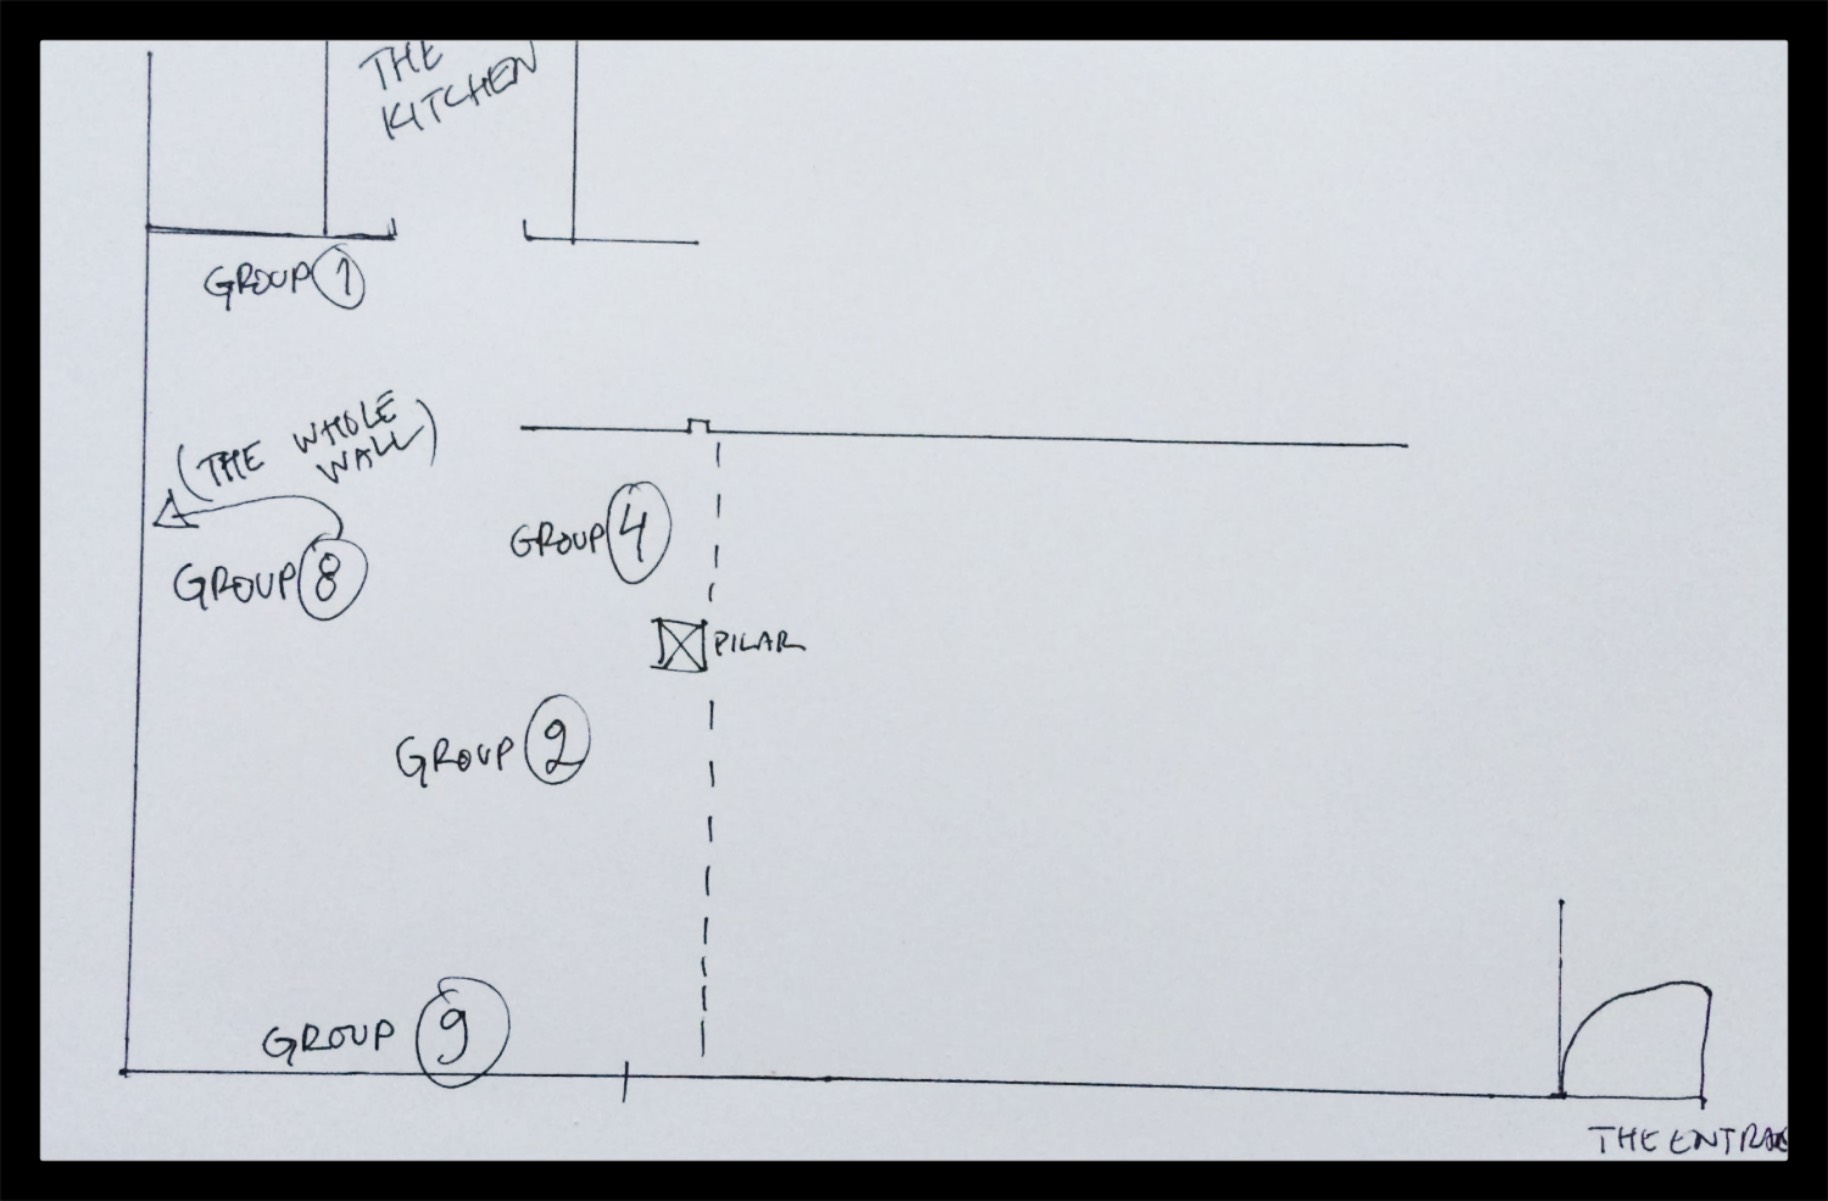 THE
KITCHEN
GROUP 1
(THE WHOLE
WALL)
GROUP 8
GROUP 4
PILAR
GROUP 2
GROUP 9
THE ENTRA